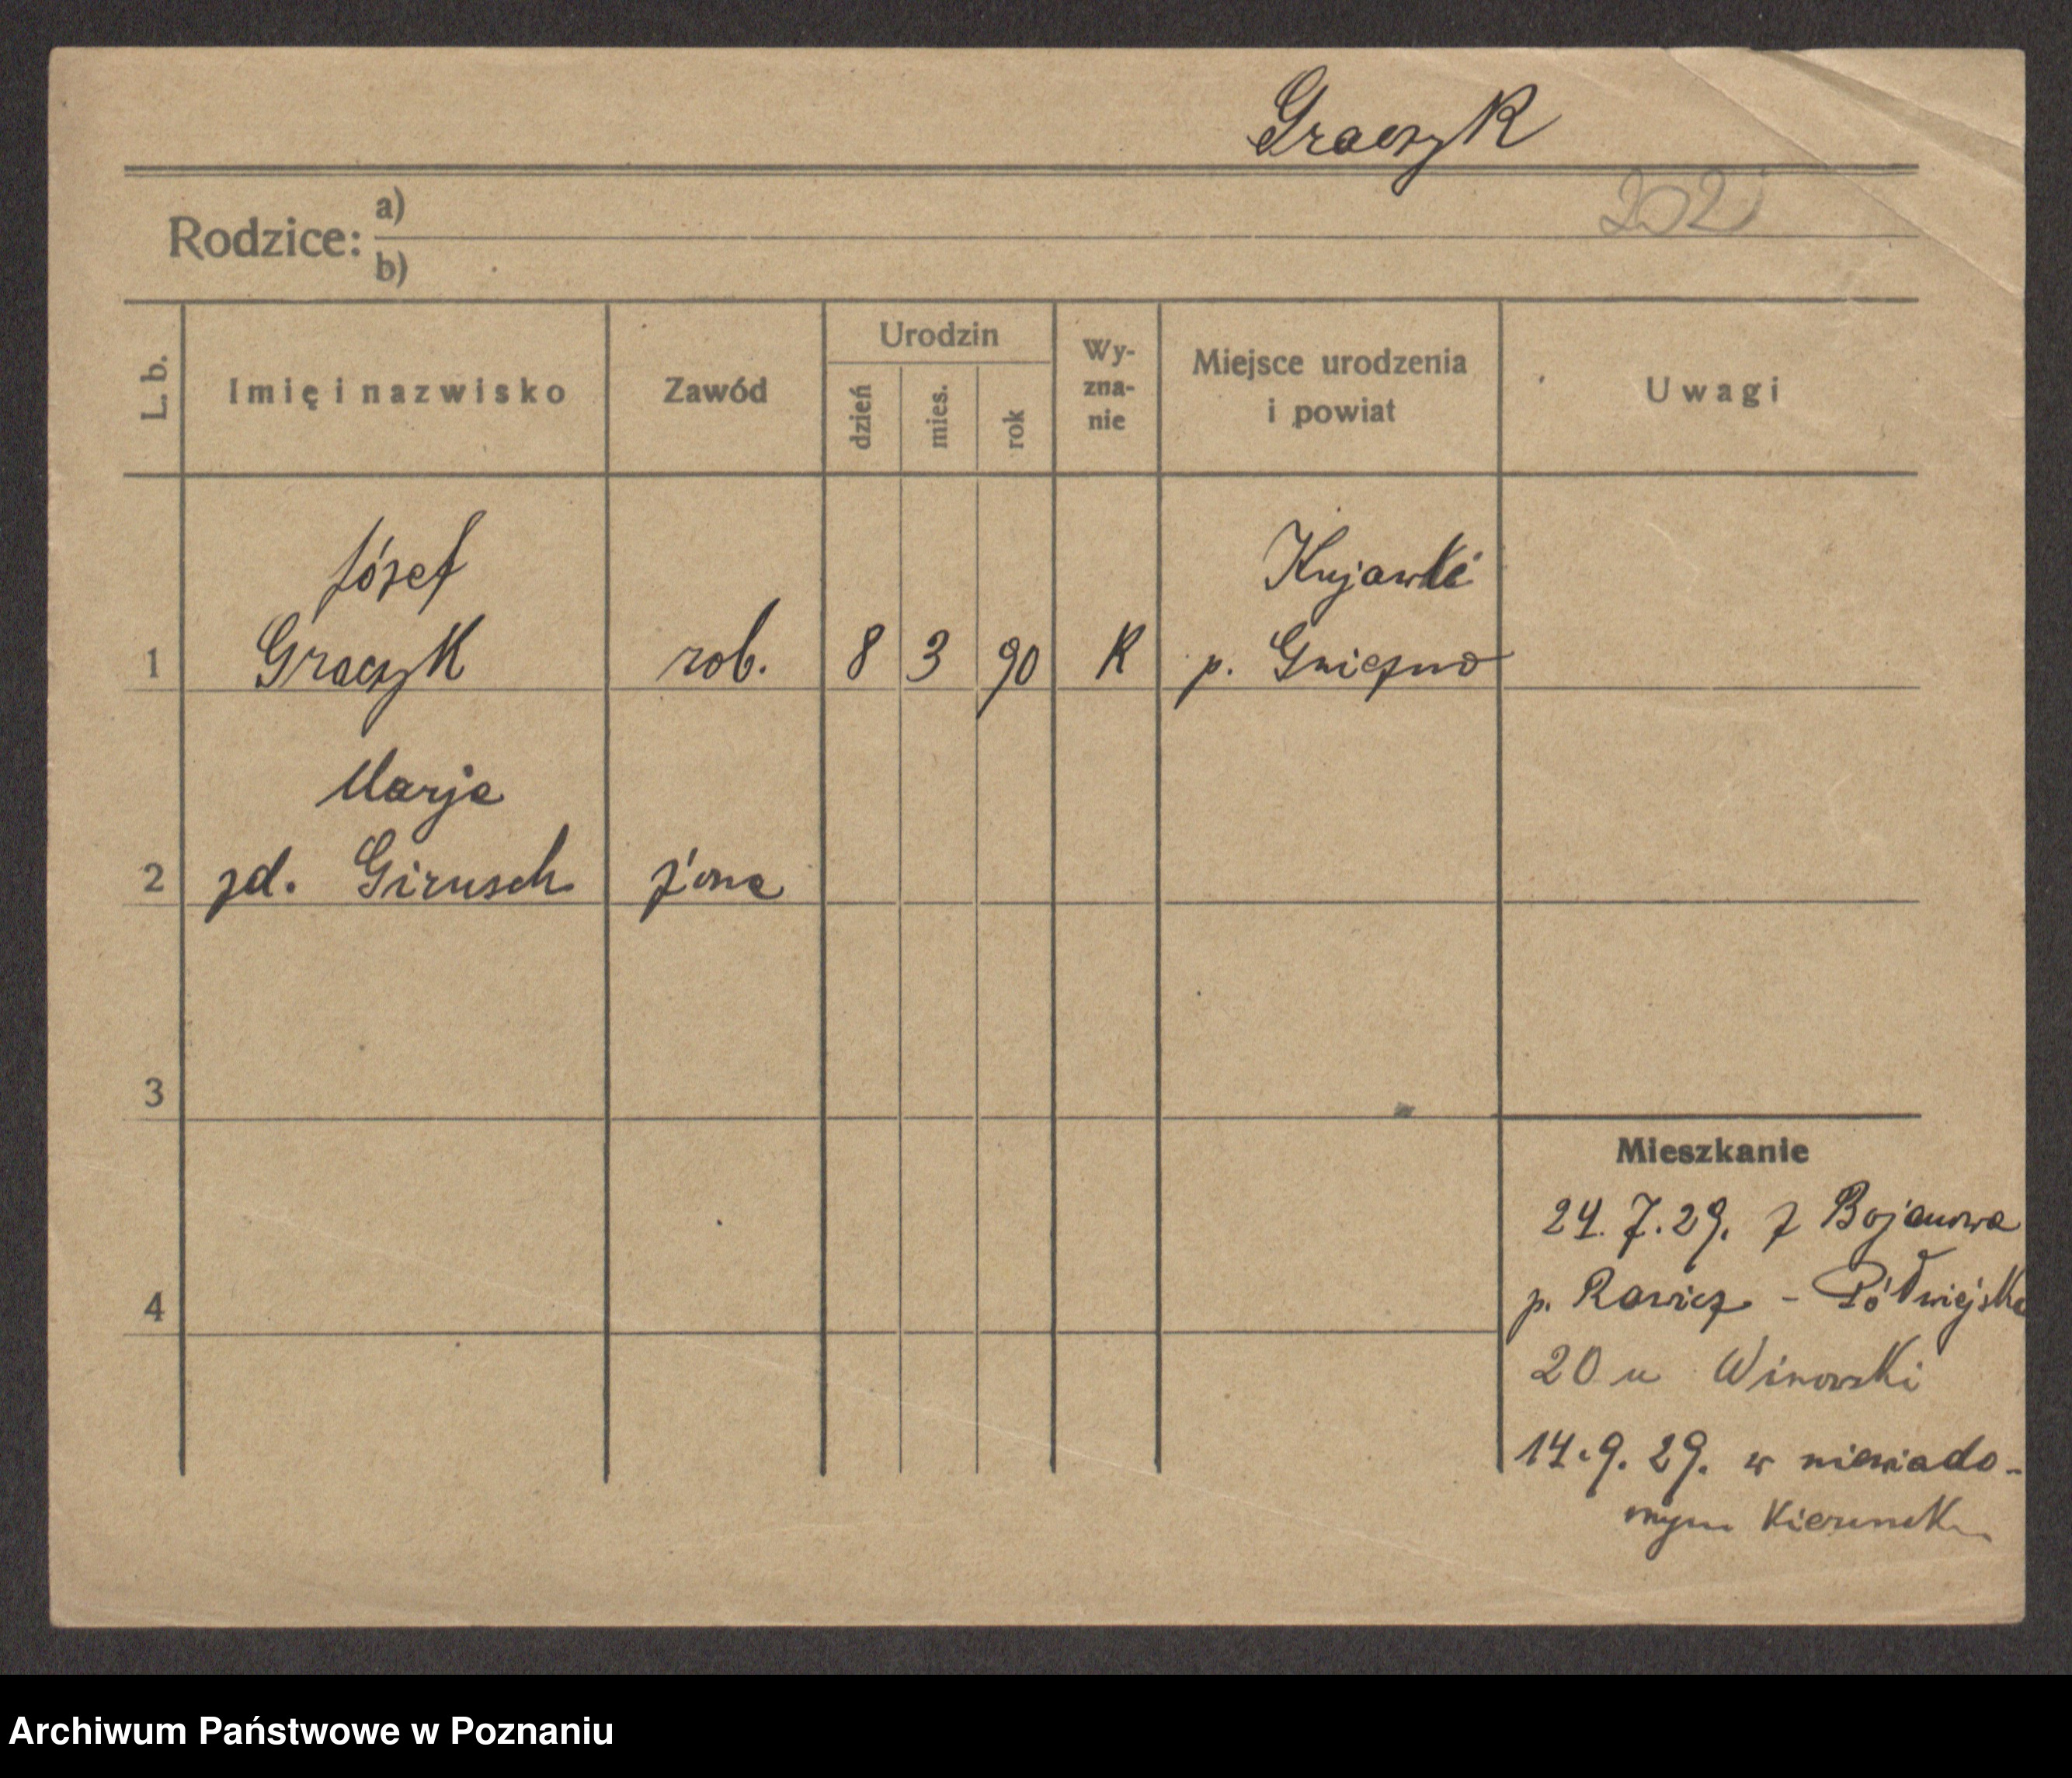 Graczyk
Rodzice: a)
202
b)
L. b. Imię i nazwisko Zawód Urodzin dzień mies. rok Wy-zna-nie Miejsce urodzenia i powiat Uwagi
Józef Kujawki
1 Graczyk rob. 8 3 90 K p. Gniezno
Marja
2 zd. Girusch żona
3
Mieszkanie
24.7.29. z Bojanowa
4 p. Rawicz - Półwiejska
20 u Winowski
14.9.29. w niewiado-
mym kierunku
Archiwum Państwowe w Poznaniu